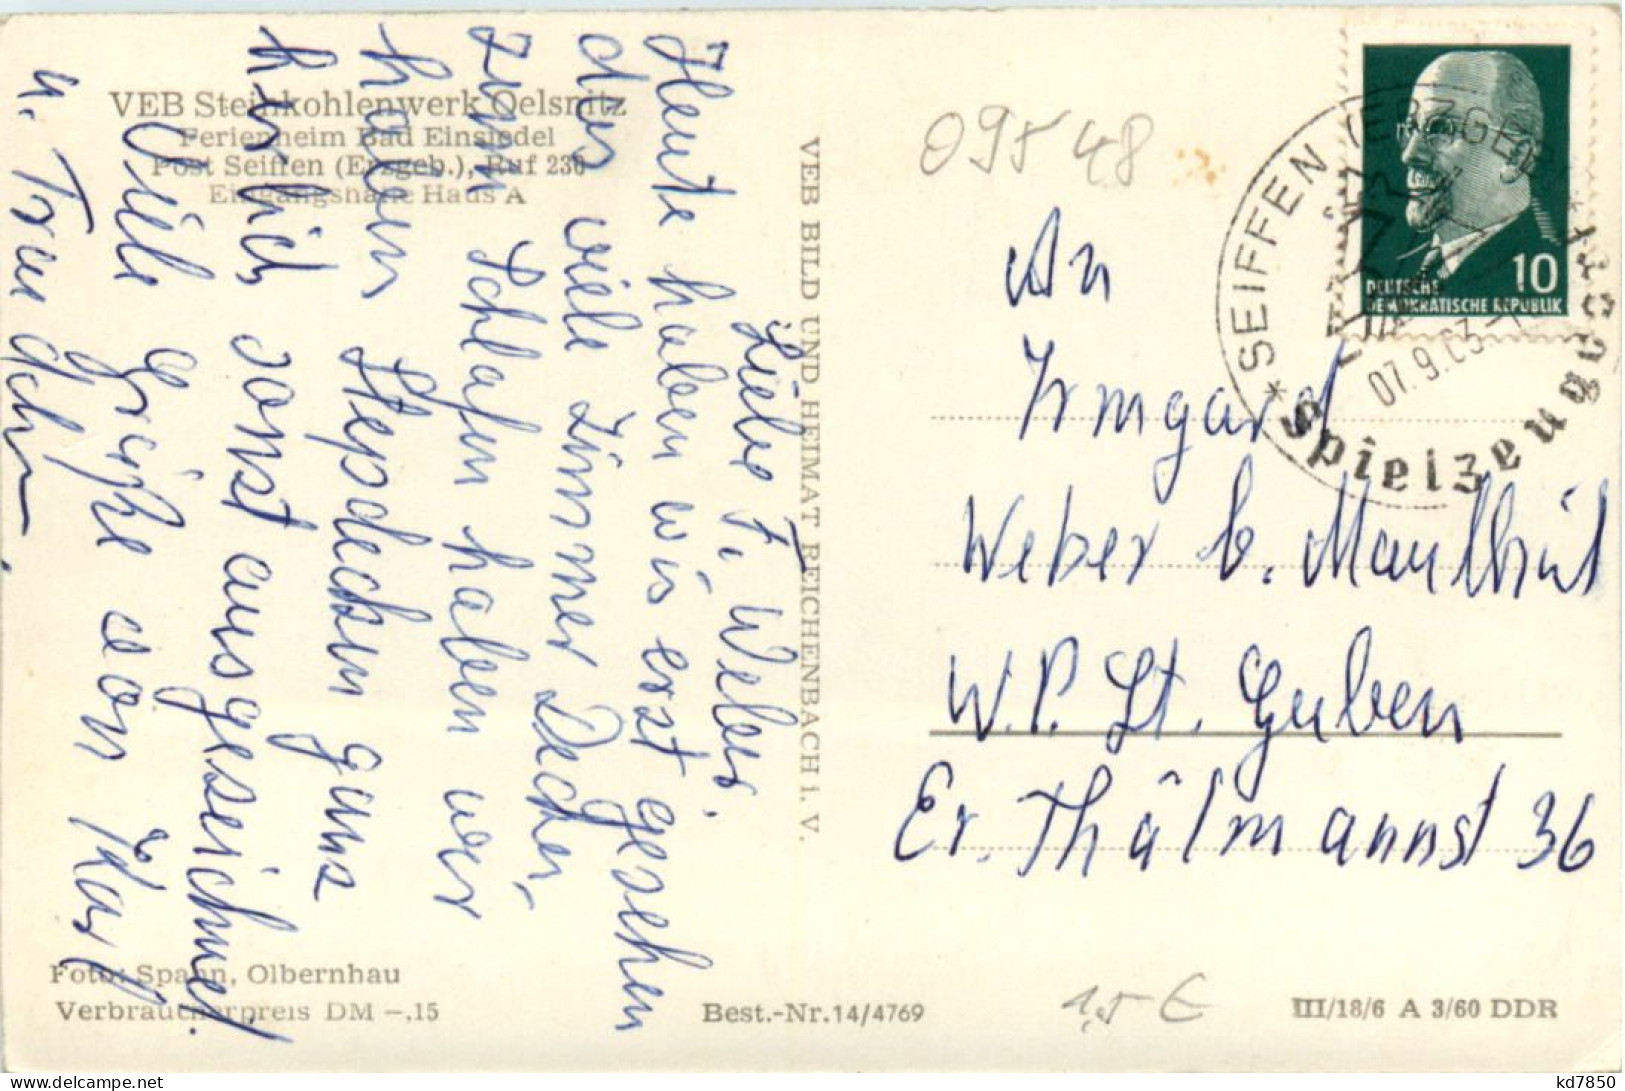 VEB Steinkohlenwerk Oelsnitz
Ferienheim Bad Einsiedel
Post Seiffen (Erzgeb.), Ruf 230
Eingangshalle Haus A
Liebe F. Weber.
Heute haben wir erst gesehen
das viele Zimmer Decken,
zum Schlafen haben wir
haben Stepdecken ganz
hübsch sonst ausgeseichnet.
Viele Grüße von Karl
u. Frau
VEB BILD UND HEIMAT REICHENBACH i. V.
09548
SEIFFEN (ERZGEB
07.9.63
Spielzeug
10
DEUTSCHE
DEMOKRATISCHE REPUBLIK
An
Irmgard
Weber b.
W.P. St. Guben
Er. Thälmannst 36
Foto: Spann, Olbernhau
Verbraucherpreis DM -,15
Best.-Nr. 14/4769
1,5 €
III/18/6 A 3/60 DDR
www.delcampe.net
kd7850